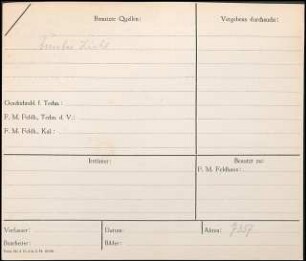 Benutzte Quellen:
Vergebens durchsucht:
Geschichtsbl. f. Techn.:
F. M. Feldh., Techn. d. V.:
F. M. Feldh., Kal.:
Irrtümer:
Benutzt zu:
F. M. Feldhaus:
Verfasser:
Datum:
Akten: 7359
Bearbeiter:
Bilder: